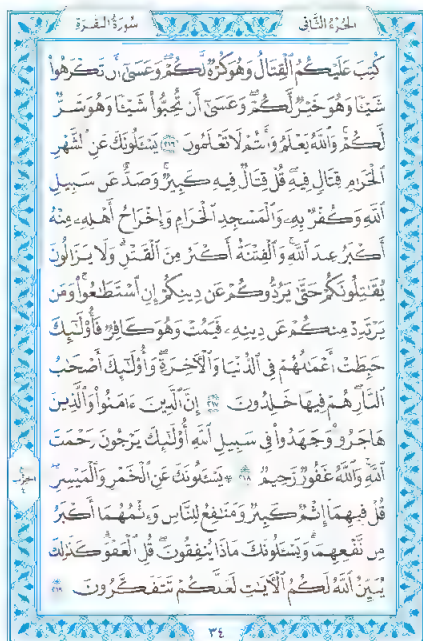 الجزء الثاني
سورة البقرة
كُتِبَ عَلَيْكُمُ ٱلْقِتَالُ وَهُوَ كُرْهٌ لَّكُمْ ۖ وَعَسَىٰٓ أَن تَكْرَهُوا۟
شَيْـًٔا وَهُوَ خَيْرٌ لَّكُمْ ۖ وَعَسَىٰٓ أَن تُحِبُّوا۟ شَيْـًٔا وَهُوَ شَرٌّ
لَّكُمْ ۗ وَٱللَّهُ يَعْلَمُ وَأَنتُمْ لَا تَعْلَمُونَ ٢١٦ يَسْـَٔلُونَكَ عَنِ ٱلشَّهْرِ
ٱلْحَرَامِ قِتَالٍ فِيهِ ۖ قُلْ قِتَالٌ فِيهِ كَبِيرٌ ۖ وَصَدٌّ عَن سَبِيلِ
ٱللَّهِ وَكُفْرٌۢ بِهِۦ وَٱلْمَسْجِدِ ٱلْحَرَامِ وَإِخْرَاجُ أَهْلِهِۦ مِنْهُ
أَكْبَرُ عِندَ ٱللَّهِ ۚ وَٱلْفِتْنَةُ أَكْبَرُ مِنَ ٱلْقَتْلِ ۗ وَلَا يَزَالُونَ
يُقَـٰتِلُونَكُمْ حَتَّىٰ يَرُدُّوكُمْ عَن دِينِكُمْ إِنِ ٱسْتَطَـٰعُوا۟ ۚ وَمَن
يَرْتَدِدْ مِنكُمْ عَن دِينِهِۦ فَيَمُتْ وَهُوَ كَافِرٌ فَأُو۟لَـٰٓئِكَ
حَبِطَتْ أَعْمَـٰلُهُمْ فِى ٱلدُّنْيَا وَٱلْـَٔاخِرَةِ ۖ وَأُو۟لَـٰٓئِكَ أَصْحَـٰبُ
ٱلنَّارِ ۖ هُمْ فِيهَا خَـٰلِدُونَ ٢١٧ إِنَّ ٱلَّذِينَ ءَامَنُوا۟ وَٱلَّذِينَ
هَاجَرُوا۟ وَجَـٰهَدُوا۟ فِى سَبِيلِ ٱللَّهِ أُو۟لَـٰٓئِكَ يَرْجُونَ رَحْمَتَ
ٱللَّهِ ۚ وَٱللَّهُ غَفُورٌ رَّحِيمٌ ٢١٨ ۞ يَسْـَٔلُونَكَ عَنِ ٱلْخَمْرِ وَٱلْمَيْسِرِ ۖ
قُلْ فِيهِمَآ إِثْمٌ كَبِيرٌ وَمَنَـٰفِعُ لِلنَّاسِ وَإِثْمُهُمَآ أَكْبَرُ
مِن نَّفْعِهِمَا ۗ وَيَسْـَٔلُونَكَ مَاذَا يُنفِقُونَ قُلِ ٱلْعَفْوَ ۗ كَذَٰلِكَ
يُبَيِّنُ ٱللَّهُ لَكُمُ ٱلْـَٔايَـٰتِ لَعَلَّكُمْ تَتَفَكَّرُونَ ٢١٩
٣٤